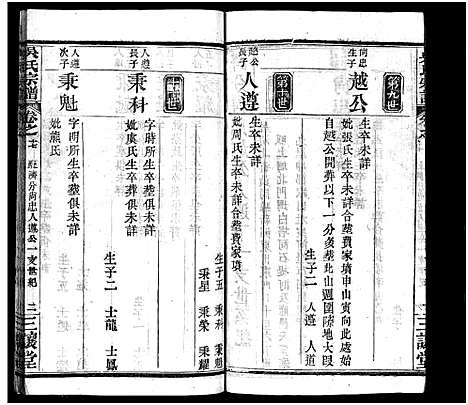 第九世
尚忠長子 越公
生卒未詳
妣張氏生卒未詳合葬費家墳申山寅向此處始
自越公開葬以下一分葬此山週圍陸地大段
生子二 人遵 人道
第十世
越公長子 人遵
生卒未詳
妣周氏生卒未詳合葬費家項
生子五 秉科 秉魁
秉星 秉榮 秉耀
人遵長子 秉科
字時所生卒葬俱未詳
妣虞氏生卒葬俱未詳
生子二 士龍 士鳳
人遵次子 秉魁
字明所生卒葬俱未詳
妣熊氏
吳氏宗譜
卷之
莊濟分尚忠人遵公一支世紀
三讓堂
三讓堂